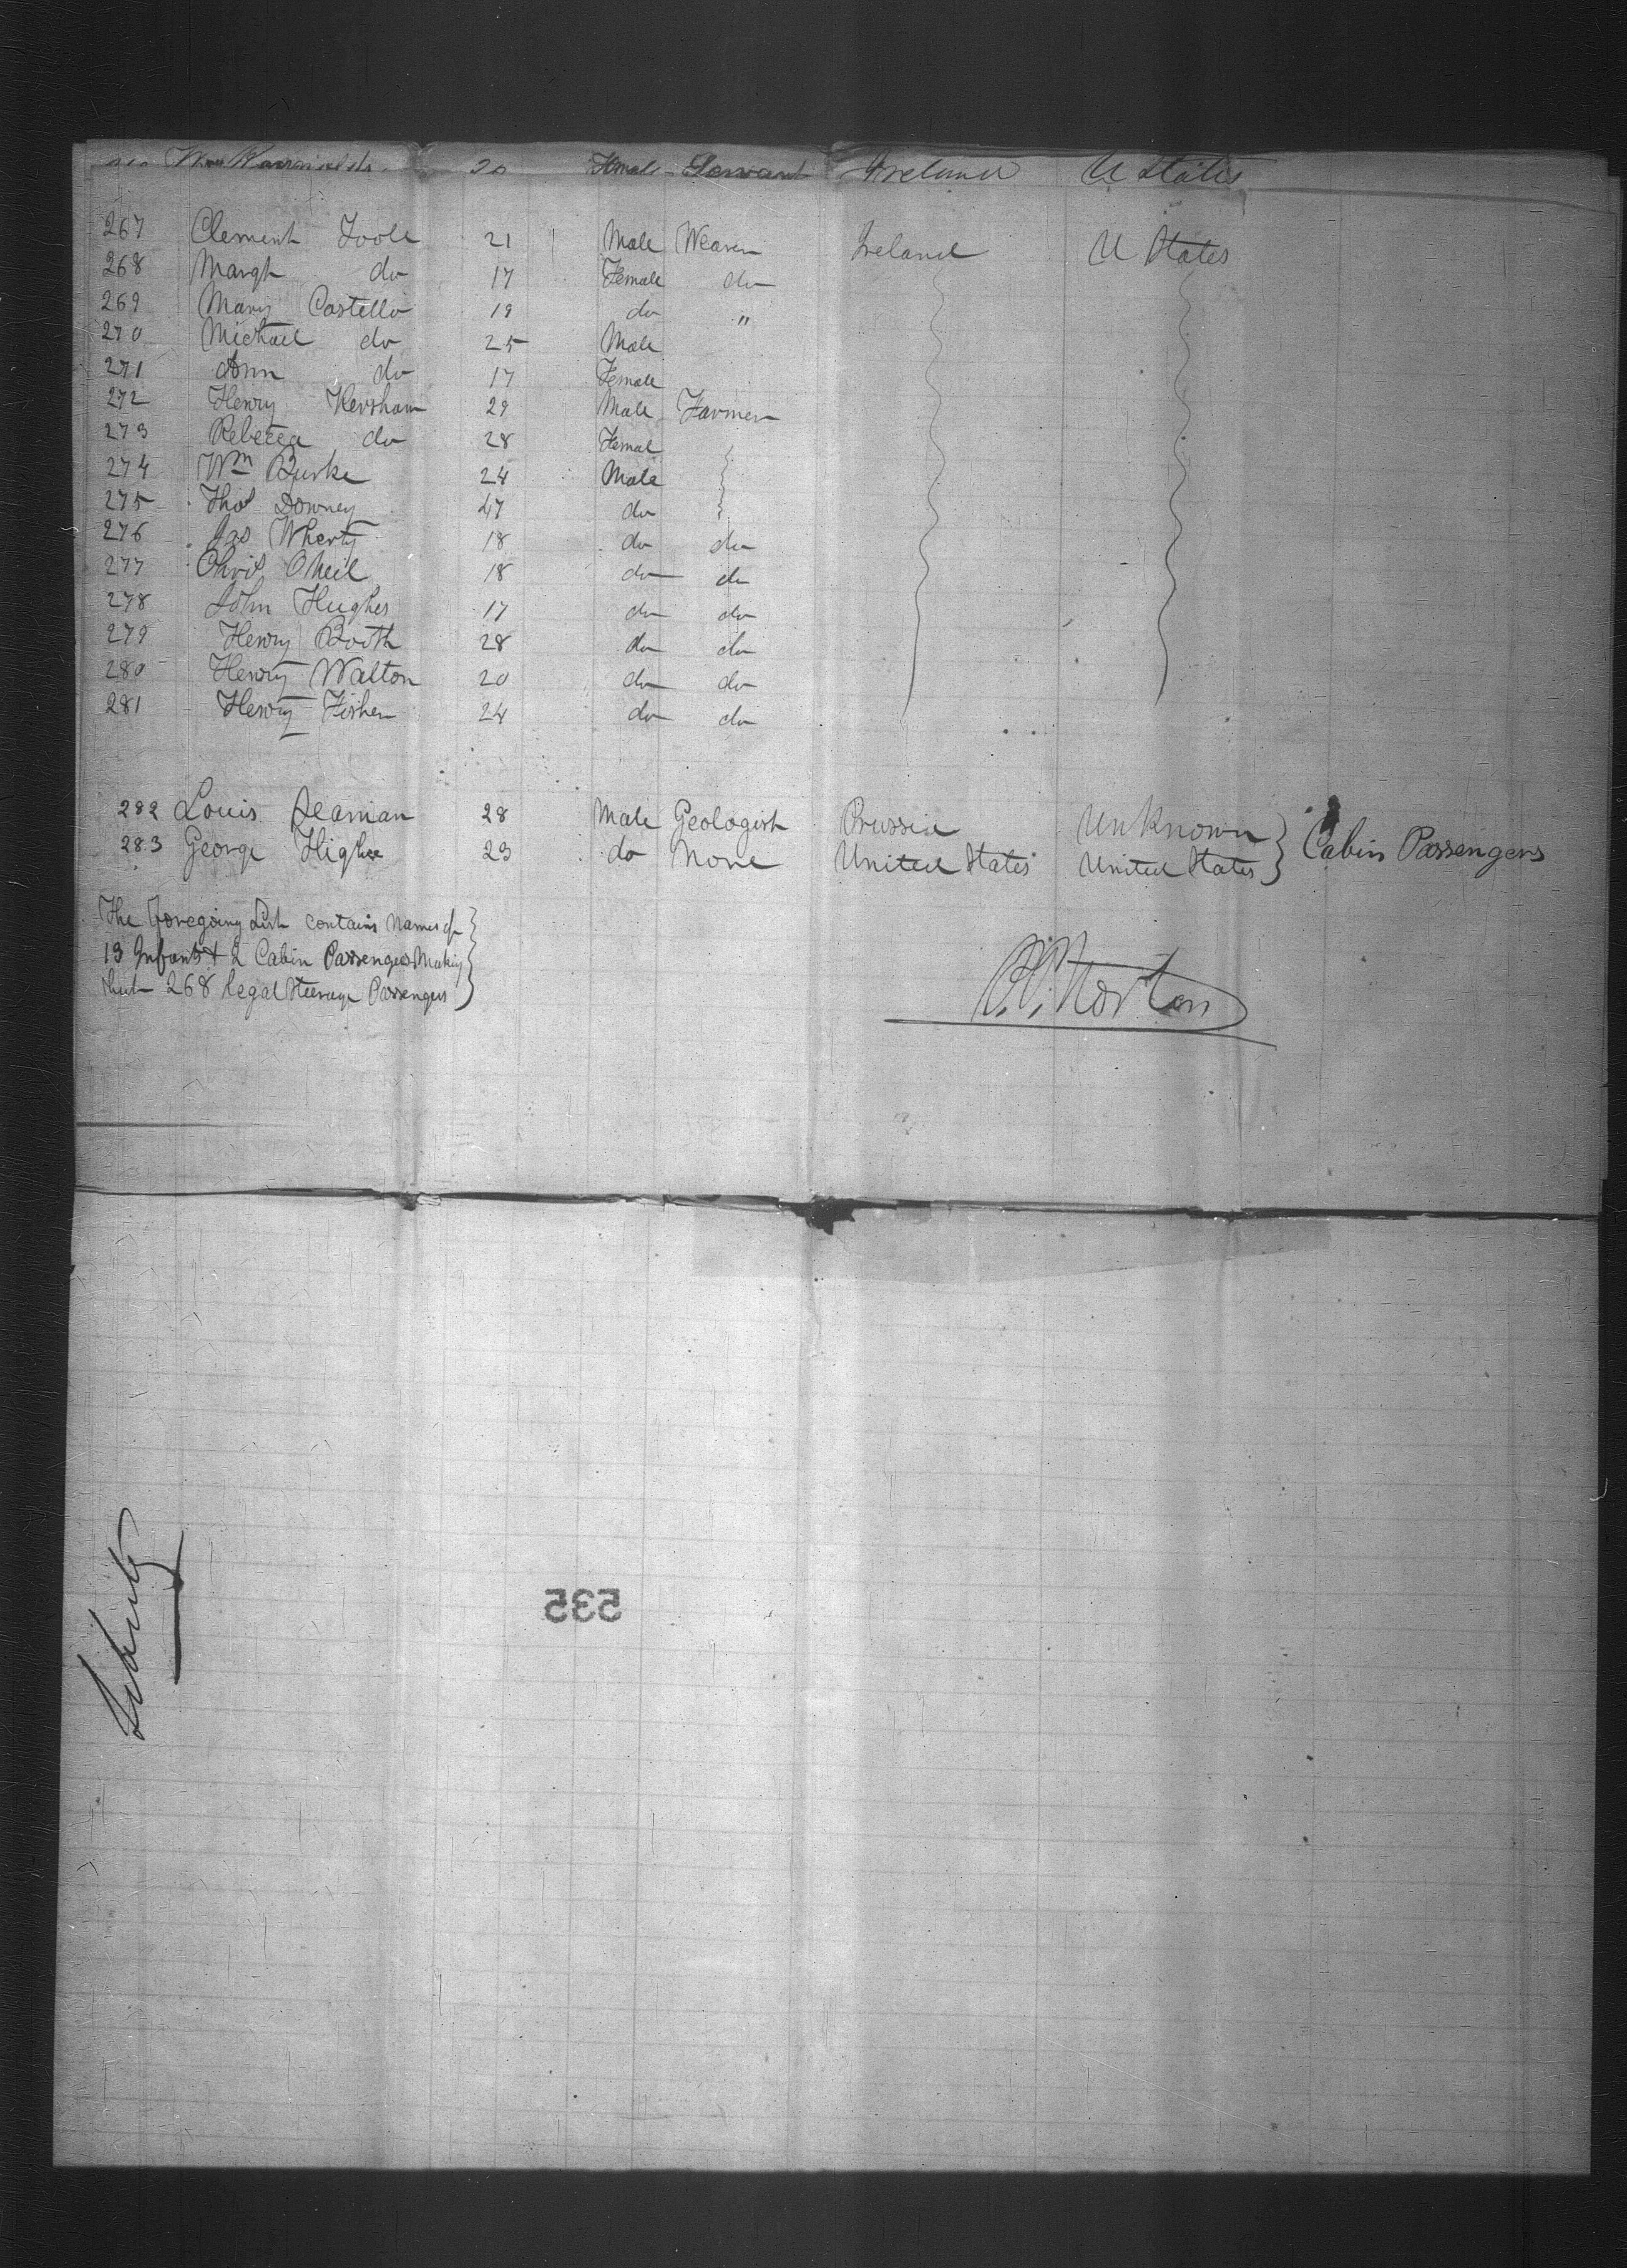 20 Female Servant Ireland U States
267 Clement Toole 21 Male Weaver Ireland U States
268 Margt do 17 Female do
269 Mary Castello 19 do "
270 Michael do 25 Male
271 Ann do 17 Female
272 Henry Kersham 29 Male Farmer
273 Rebecca do 28 Femal
274 Wm Burke 24 Male
275 Thos Downey 47 do
276 Jas Wherty 18 do do
277 Chris ONeil 18 do do
278 John Hughes 17 do do
279 Henry Booth 28 do do
280 Henry Walton 20 do do
281 Henry Fisher 24 do do
282 Louis 28 Male Geologist Prussia UnKnown
283 George Higbee 23 do None United States United States
Cabin Passengers
The foregoing List contains names of
13 Infants & 2 Cabin Passengers Making
268 legal Steerage Passengers
Norton
535